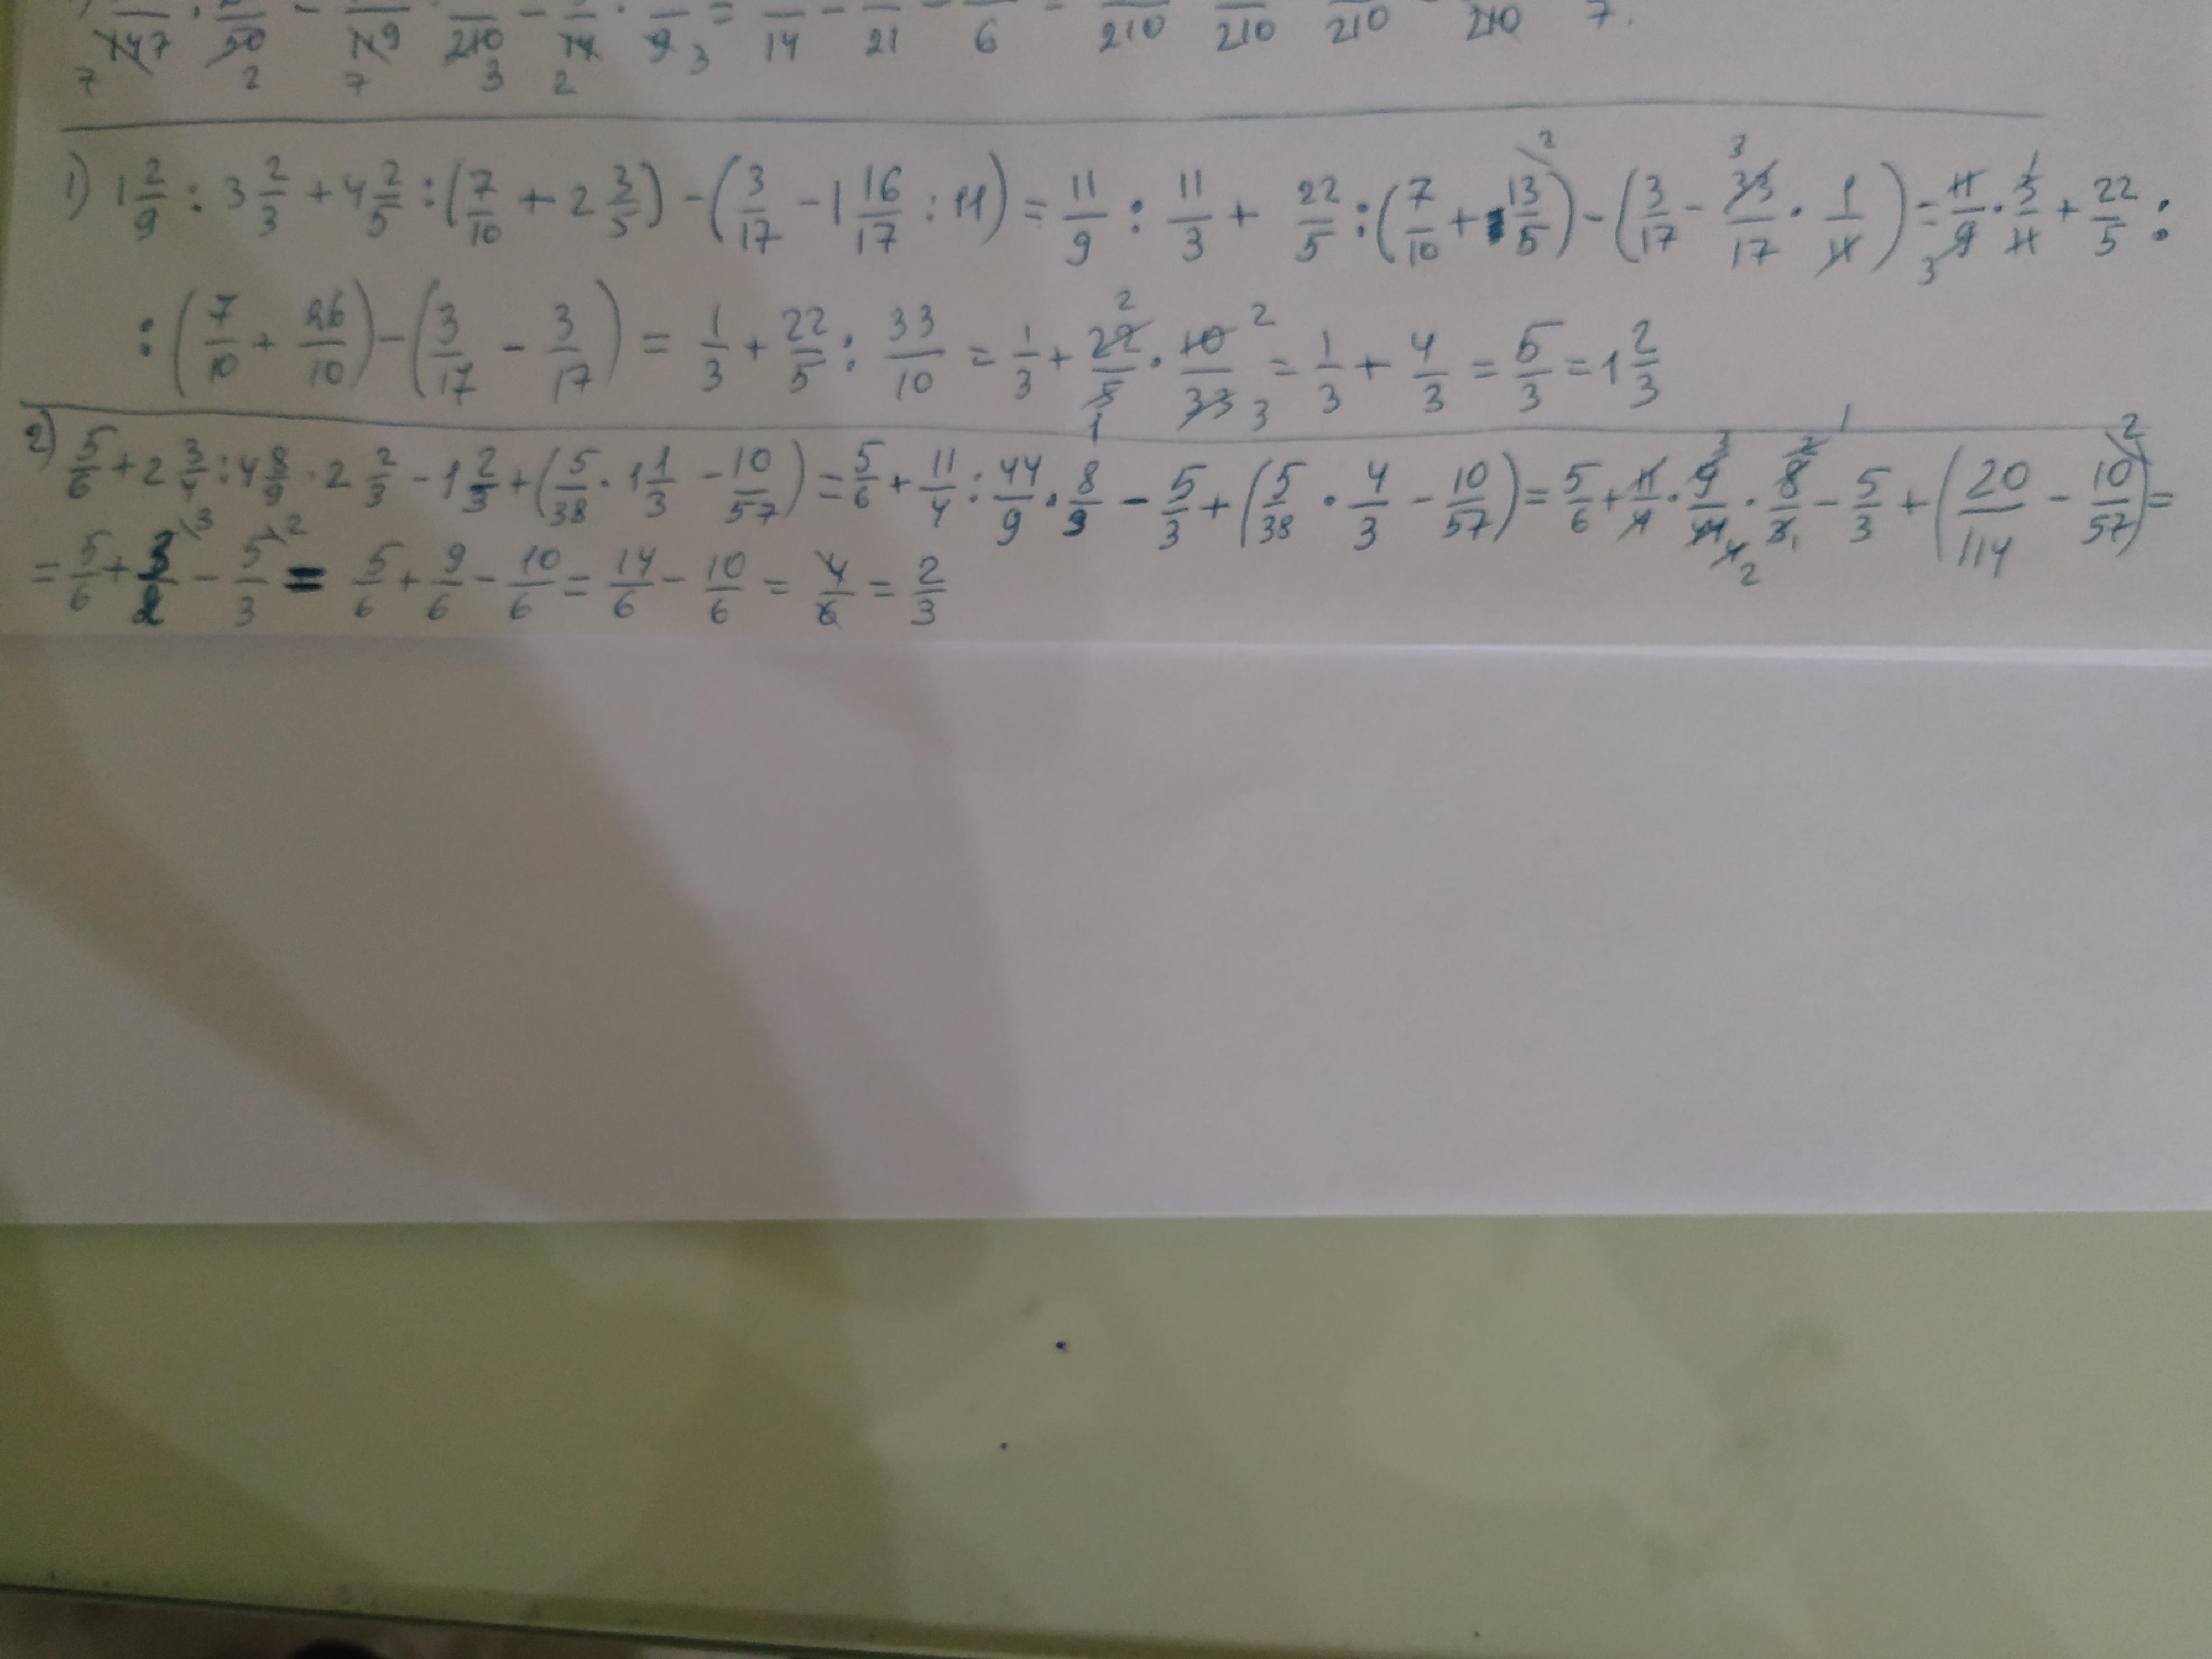 147 50 49 210 14 9 3 = 14 21 6 210 210 210 210 7.
7 2 7 3 2
1) 1 2/9 : 3 2/3 + 4 2/5 : (7/10 + 2 3/5) - (3/17 - 1 16/17 : 11) = 11/9 : 11/3 + 22/5 : (7/10 + 13/5 \2) - (3/17 - 33/17 3 · 1/11) = 11/9 3 · 3/11 1 + 22/5 :
: (7/10 + 26/10) - (3/17 - 3/17) = 1/3 + 22/5 : 33/10 = 1/3 + 22/5 2 1 · 10/33 2 3 = 1/3 + 4/3 = 5/3 = 1 2/3
2) 5/6 + 2 3/4 : 4 8/9 · 2 2/3 - 1 2/3 + (5/38 · 1 1/3 - 10/57) = 5/6 + 11/4 : 44/9 · 8/3 - 5/3 + (5/38 · 4/3 - 10/57) = 5/6 + 11/4 · 9/44 3 4 2 · 8/3 2 1 1 - 5/3 + (20/114 - 10/57 \2) =
= 5/6 + 3/2 \3 - 5/3 \2 = 5/6 + 9/6 - 10/6 = 14/6 - 10/6 = 4/6 = 2/3